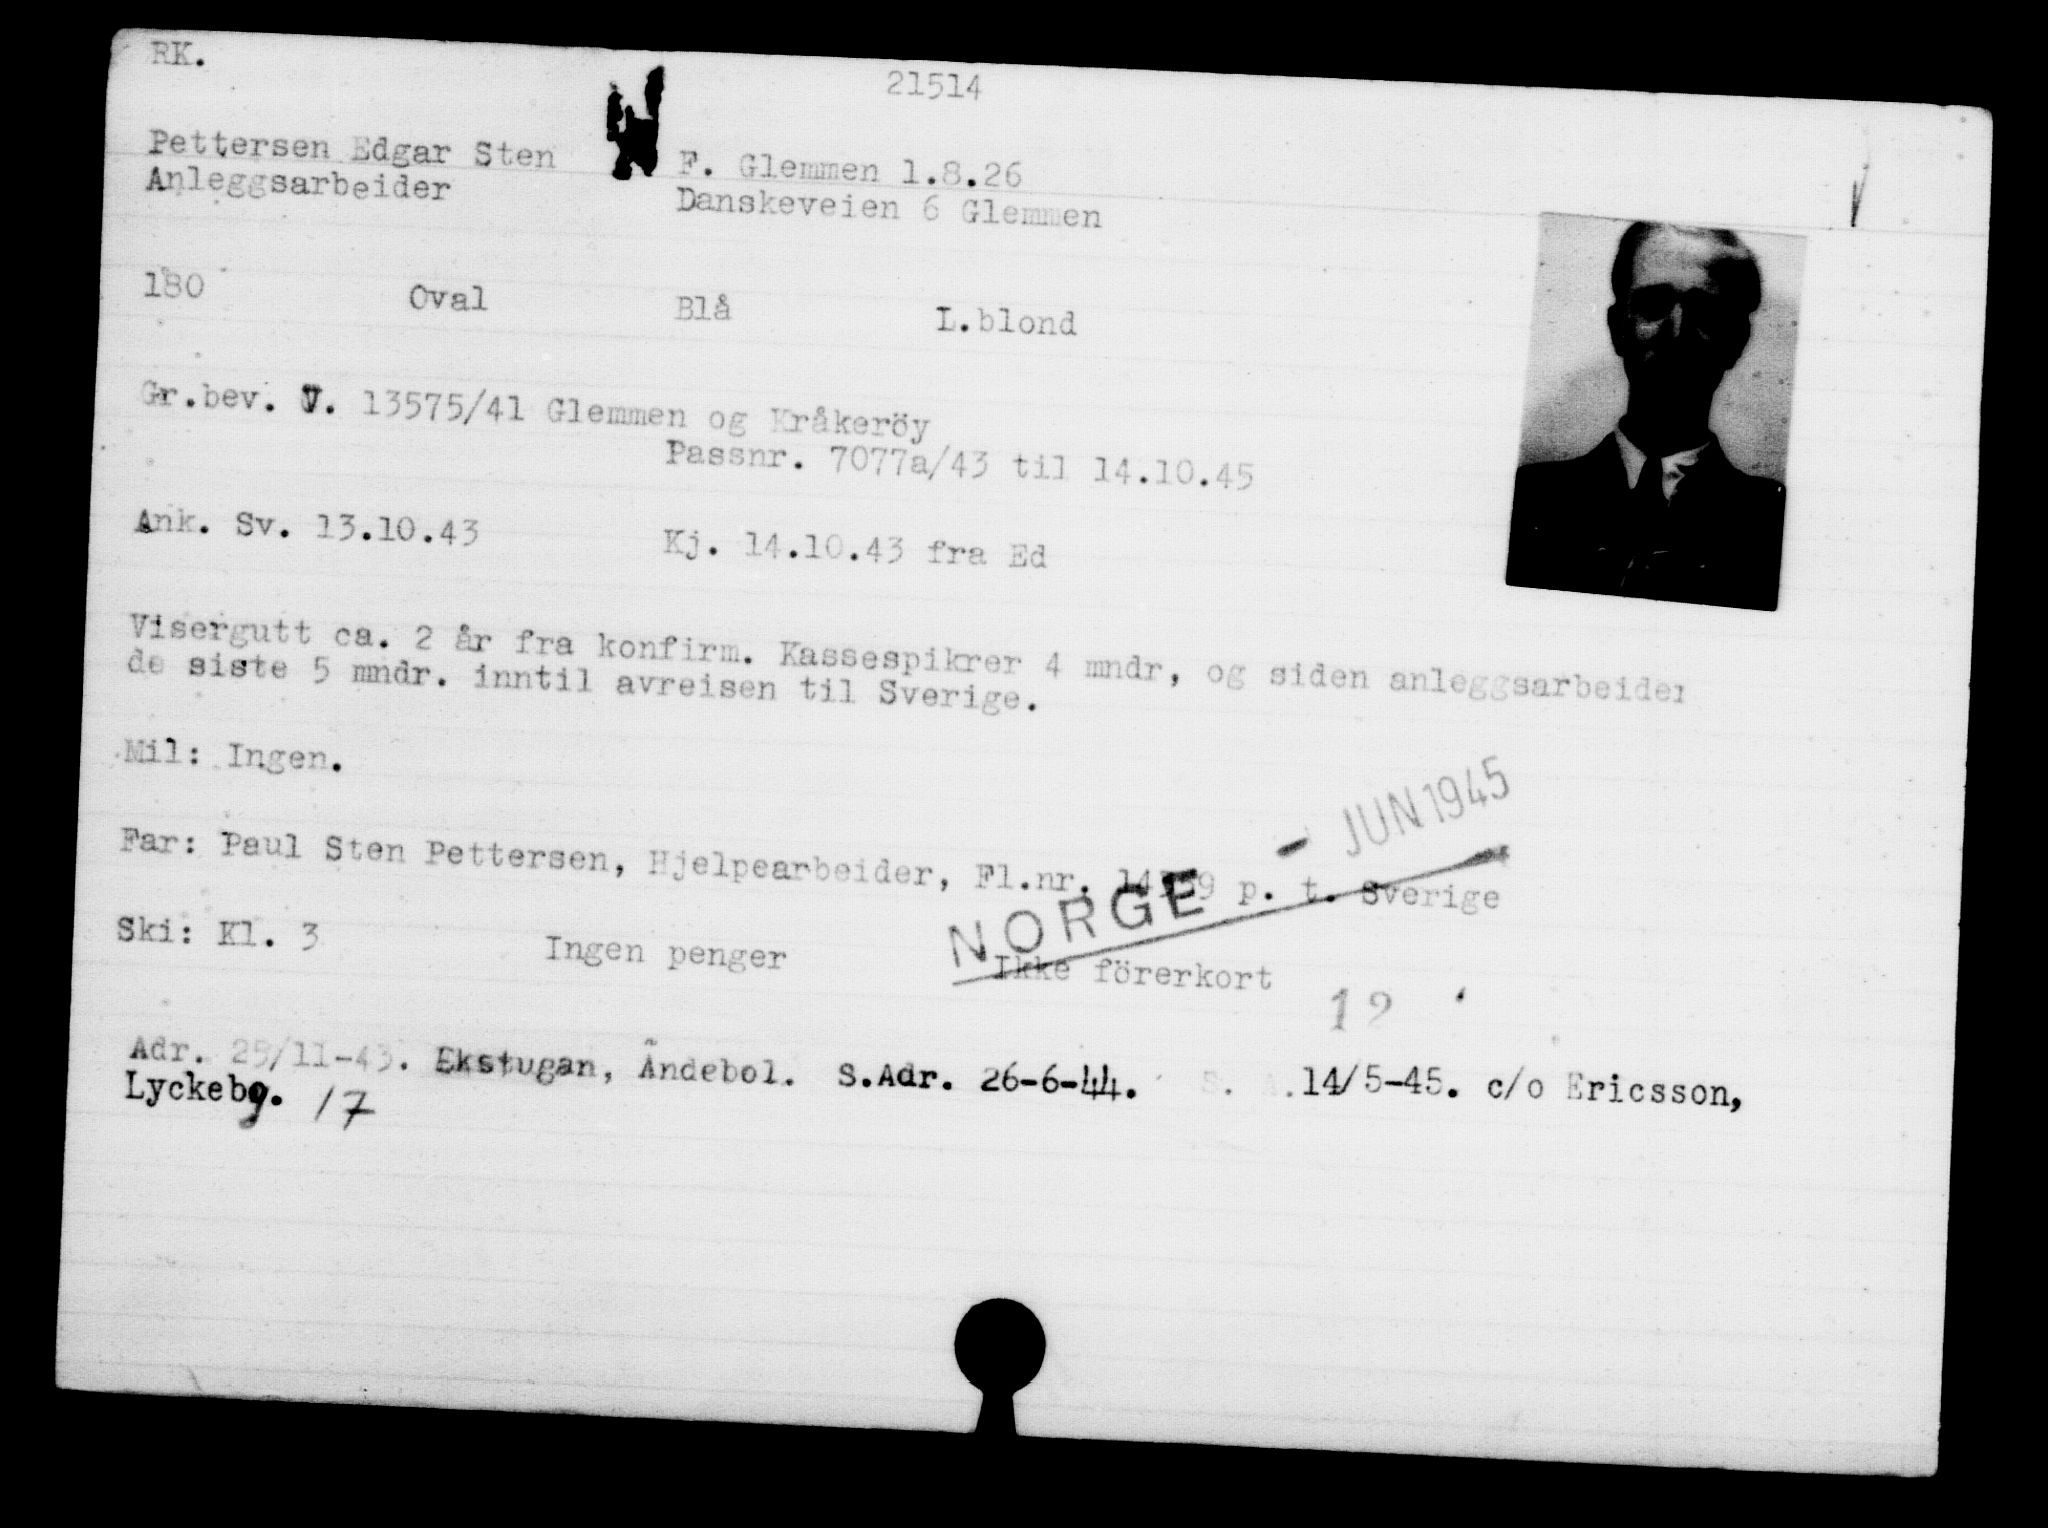 RK.
21514
Pettersen Edgar Sten F. Glemmen 1.8.26
Anleggsarbeider Danskeveien 6 Glemmen
180 Oval Blå L.blond
Gr.bev. V. 13575/41 Glemmen og Kråkeröy
Passnr. 7077a/43 til 14.10.45
Ank. Sv. 13.10.43 Kj. 14.10.43 fra Ed
Visergutt ca. 2 år fra konfirm. Kassespikrer 4 mndr, og siden anleggsarbeider
de siste 5 mndr. inntil avreisen til Sverige.
Mil: Ingen.
- JUN 1945
Far: Paul Sten Pettersen, Hjelpearbeider, Fl.nr. p. t. Sverige
NORGE
Ski: Kl. 3 Ingen penger Ikke förerkort
12
Adr. /11-43. Ekstugan, Ändebol. S.Adr. 26-6-44. S. A.14/5-45. c/o Ericsson,
Lyckeby. 17